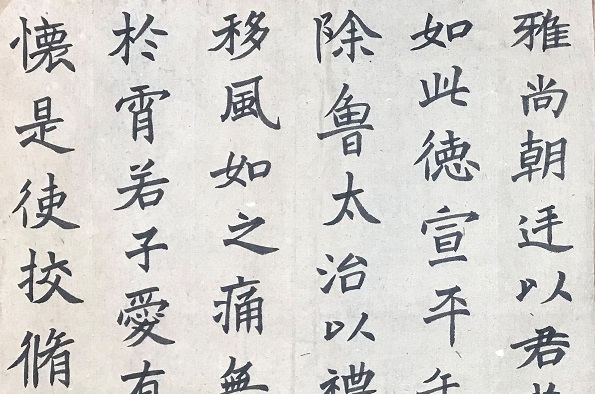 雅尚朝廷以君
如此德宣平年
除魯太治以禮
移風如之痛無
於霄若子愛有
懷是使挍脩